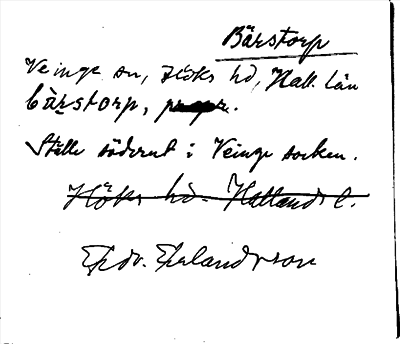 Bärstorp
Veinge sn, Höks hd, Hall. län
bärstorp,
Ställe söderut i Veinge socken.
Höks hd. Hallands l.